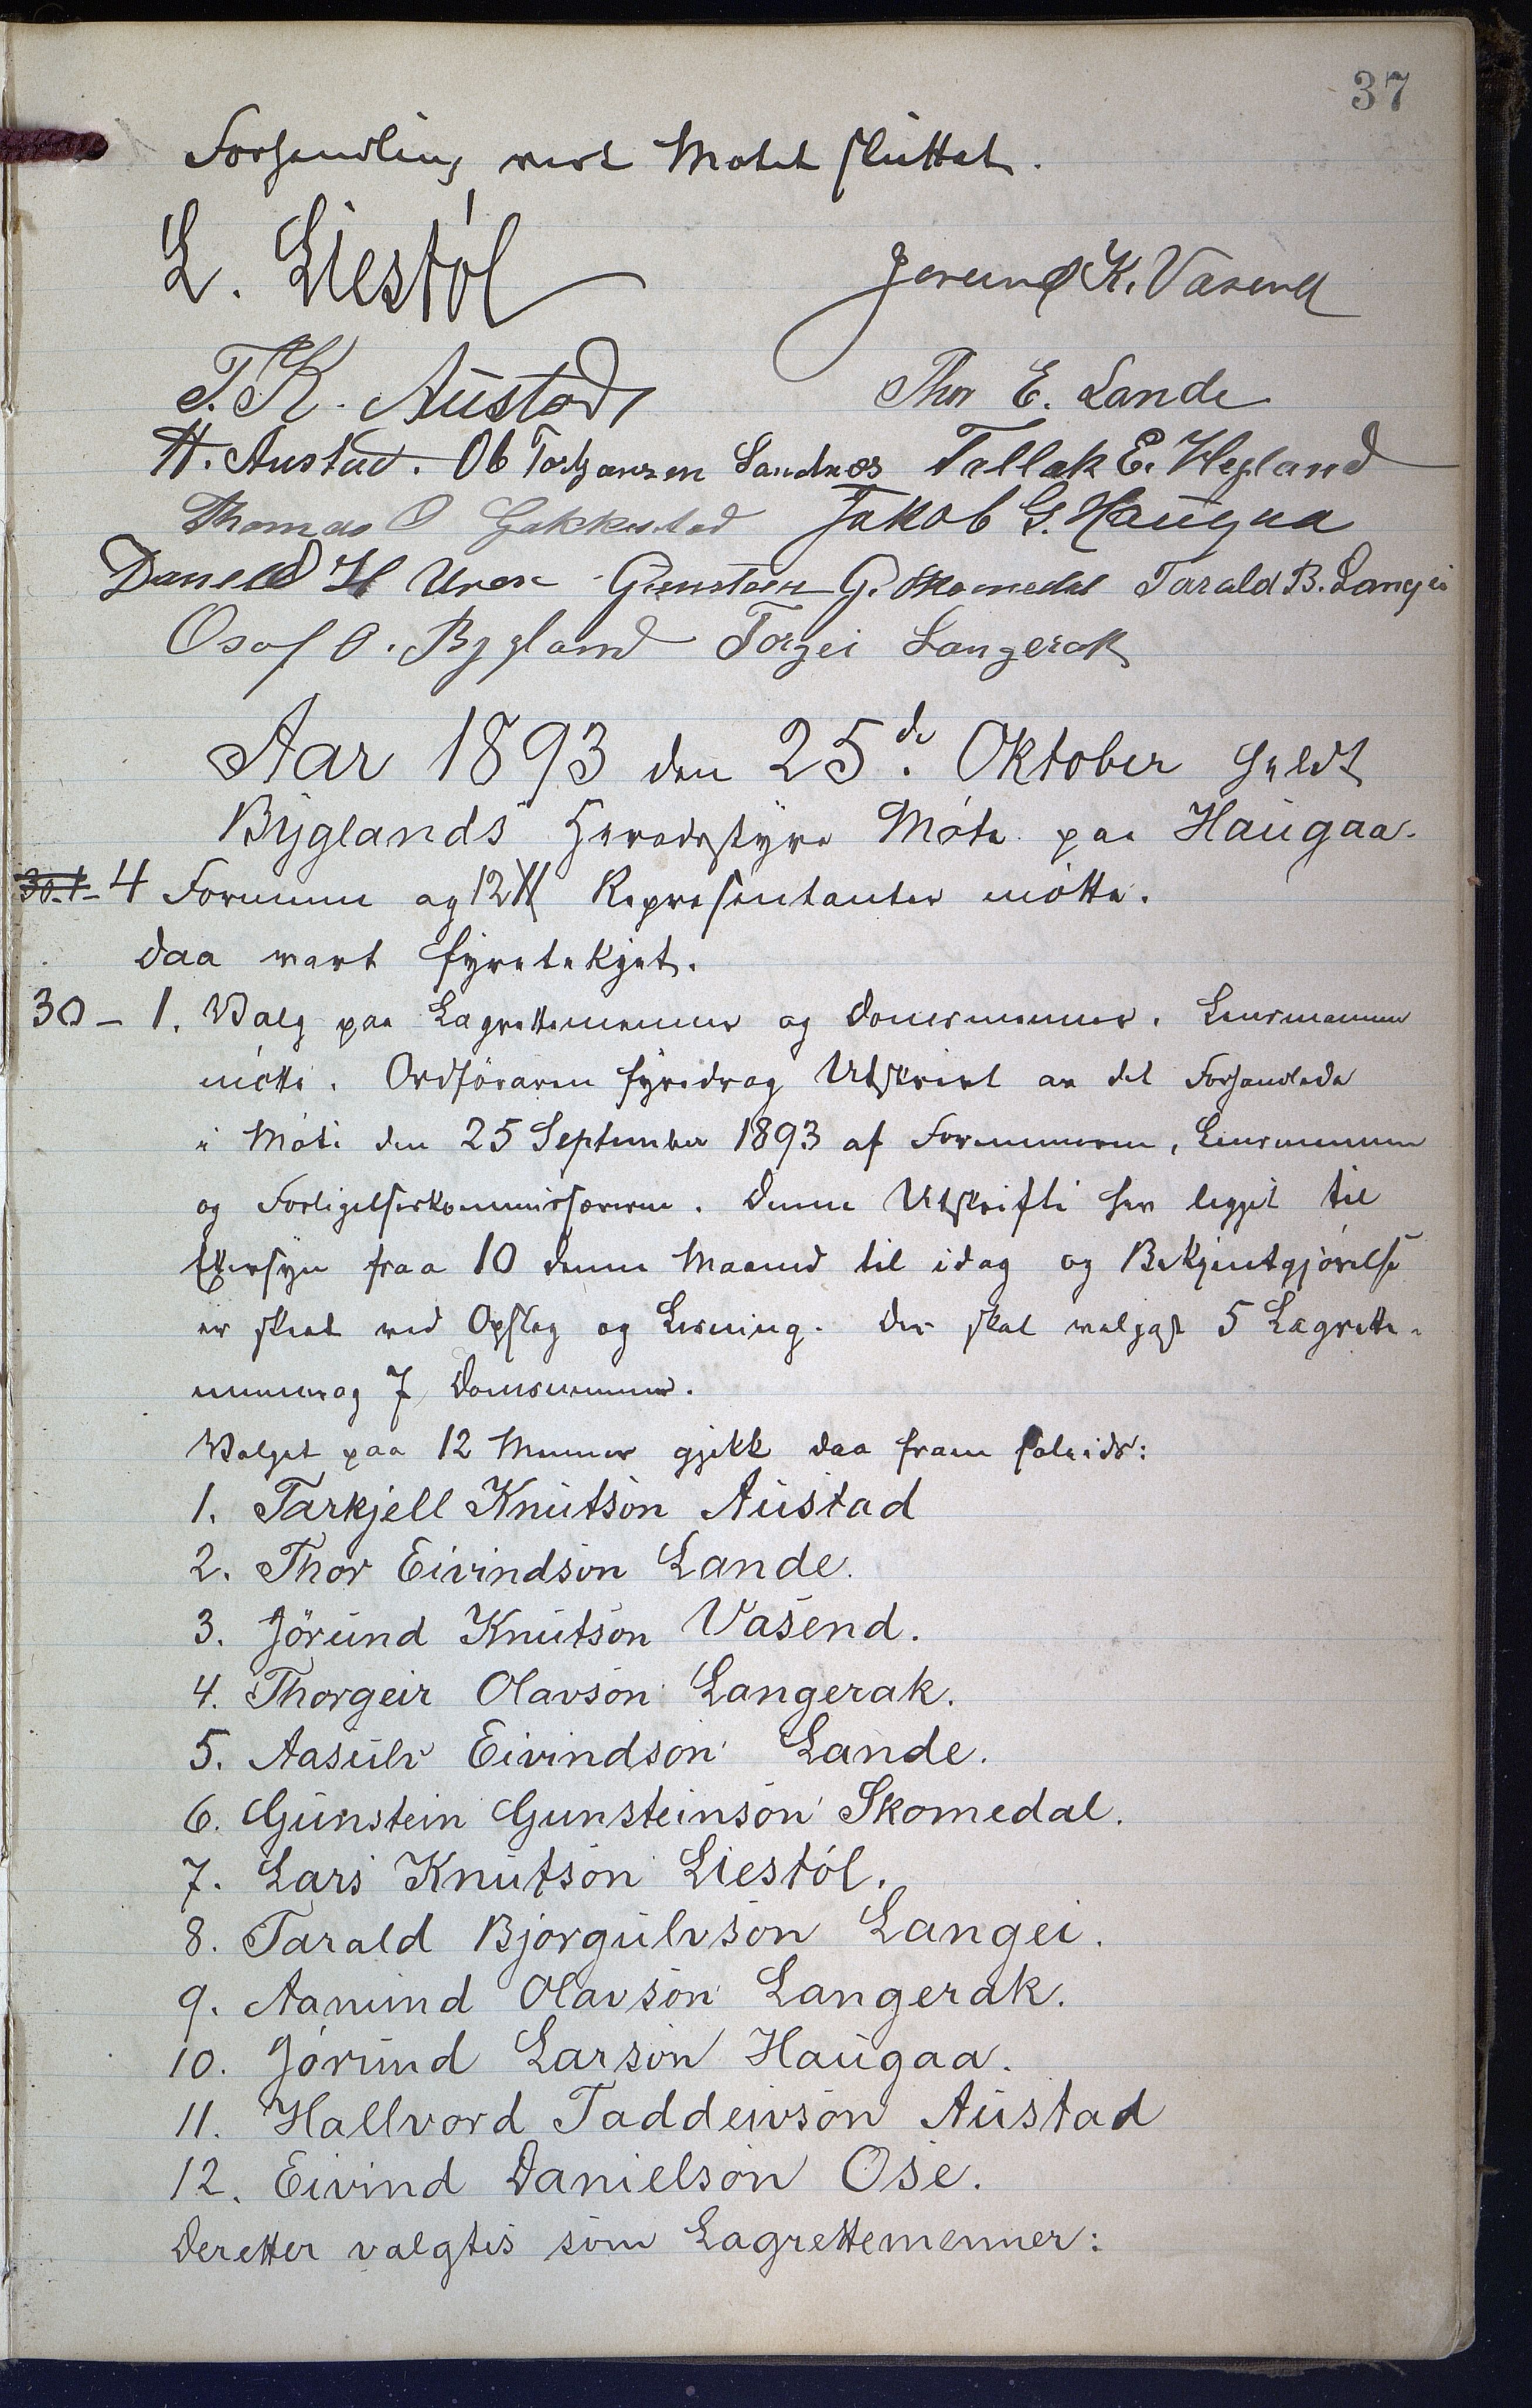 37
Forhandling vart Mötet sluttet.
L. Liestöl
Jorund K. Vasend
T. K. Austad
Thor E. Lande
H. Austad. Ob Torjansen Sandnes Tallak E. Hegland
Thomas O Gakkestad Jakob G. Haugaa
Daniel H Uren Gunstein G. Skomedal Tarald B. Langei
Osof O. Bygland Torgei Langerak
Aar 1893 den 25de. Oktober heldt
Byglands Heradsstyre Möte paa Haugaa.
30-1- 4 Formenn og 12 Representantar mötte.
Daa vart fyretekjet.
30 - 1. Valg paa Lagrettemenner og Domsmenner. Lensmannen
mötte. Ordföraren fyredrog Utskrivt av det Forhandlede
i Möte den 25 September 1893 af Formennerne, Lensmannen
og Forligelseskommissærerne. Denne Utskrifti har legget til
Ettersyn fraa 10 denne Maaned til idag og Bekjentgjörelse
er skeet ved Opslag og Lesning. Der skal veljast 5 Lagrette-
menner og 7 Domsmenner.
Valget paa 12 Menner gjekk daa fram soleids:
1. Tarkjell Knutson Austad
2. Thor Eivindson Lande.
3. Jörund Knutson Vasend.
4. Thorgeir Olavson Langerak.
5. Aasulv Eivindson Lande.
6. Gunstein Gunsteinson Skomedal.
7. Lars Knutson Liestöl.
8. Tarald Bjorgulvson Langei.
9. Aanund Olavson Langerak.
10. Jörund Larson Haugaa.
11. Hallvord Taddeivson Austad
12. Eivind Danielson Ose.
Deretter valgtes som Lagrettemenner: